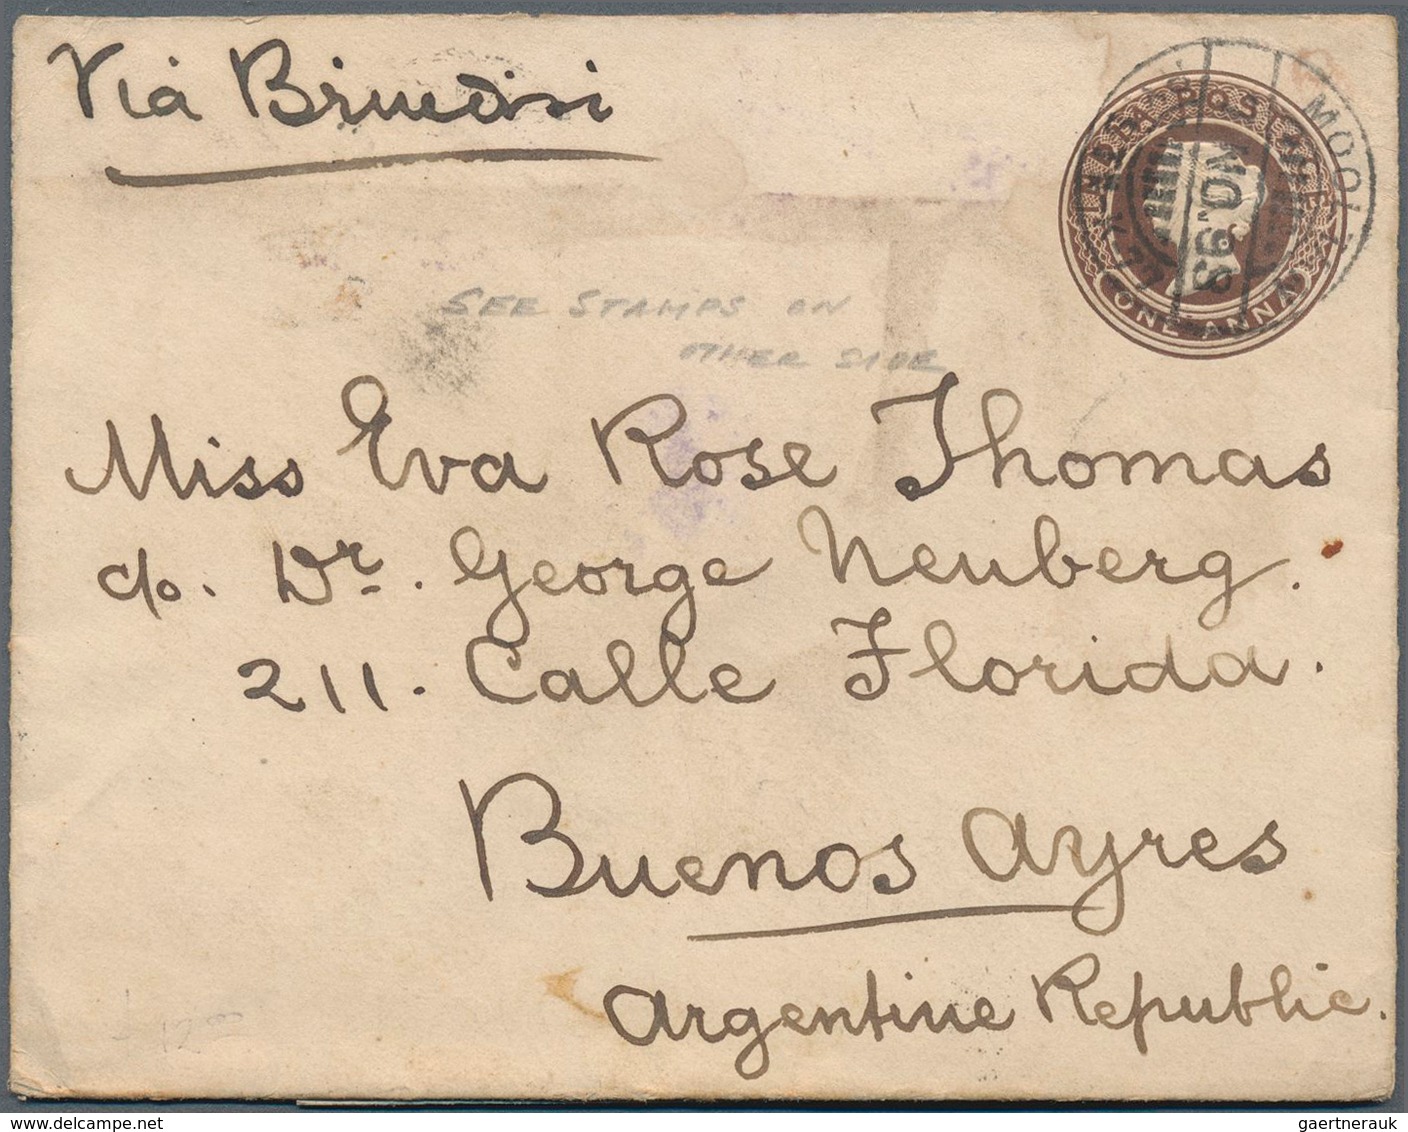 Via Brindisi
POSTAGE
ONE ANNA
NO 93
SEE STAMPS ON
OTHER SIDE
Miss Eva Rose Thomas
c/o. Dr. George Neuberg.
211. Calle Florida.
Buenos Ayres
Argentine Republic.
gaertnerauk